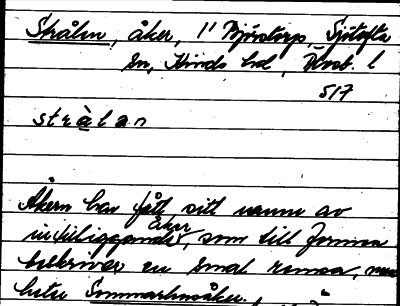 Strålan, åker, 1/1 Björstorp, Sjötofta
sn, Kinds hd, Älvsb. l
517
stràlan
Åkern har fått sitt namn av
intilliggande åker, som till formen
beskriver en smal remsa, men
heter Sommarhusåker.